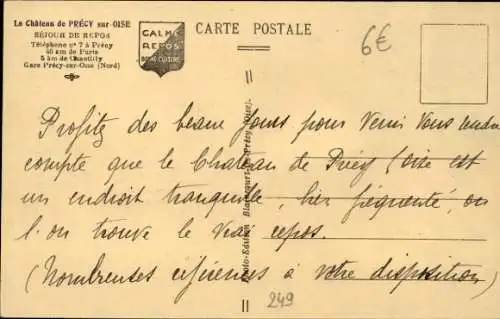 Le Château de PRÉCY sur-OISE
SÉJOUR DE REPOS
Téléphone nº 7 à Précy
46 km de Paris
5 km de Chantilly
Gare Précy-sur-Oise (Nord)
CALME
REPOS
BONNE CUISINE
CARTE POSTALE
6€
Profitez des beaux jours pour venir vous rendre
compte que le Chateau de Précy (oise est
un endroit tranquille, bien fréquenté, ou
l'on trouve le vrai repos.
(Nombreuses références à votre disposition)
Photo-Edition Précy (Oise).
249